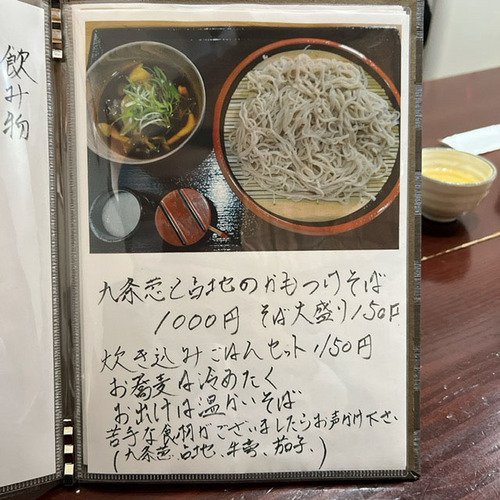 飲み物
九条葱と占地のかもつけそば
1000円 そば大盛り150円
炊き込みごはんセット1150円
お蕎麦は冷めたく
お出汁は温かいそば
苦手な食材がございましたらお声かけ下さい
(九条葱、占地、牛蒡、茄子、)